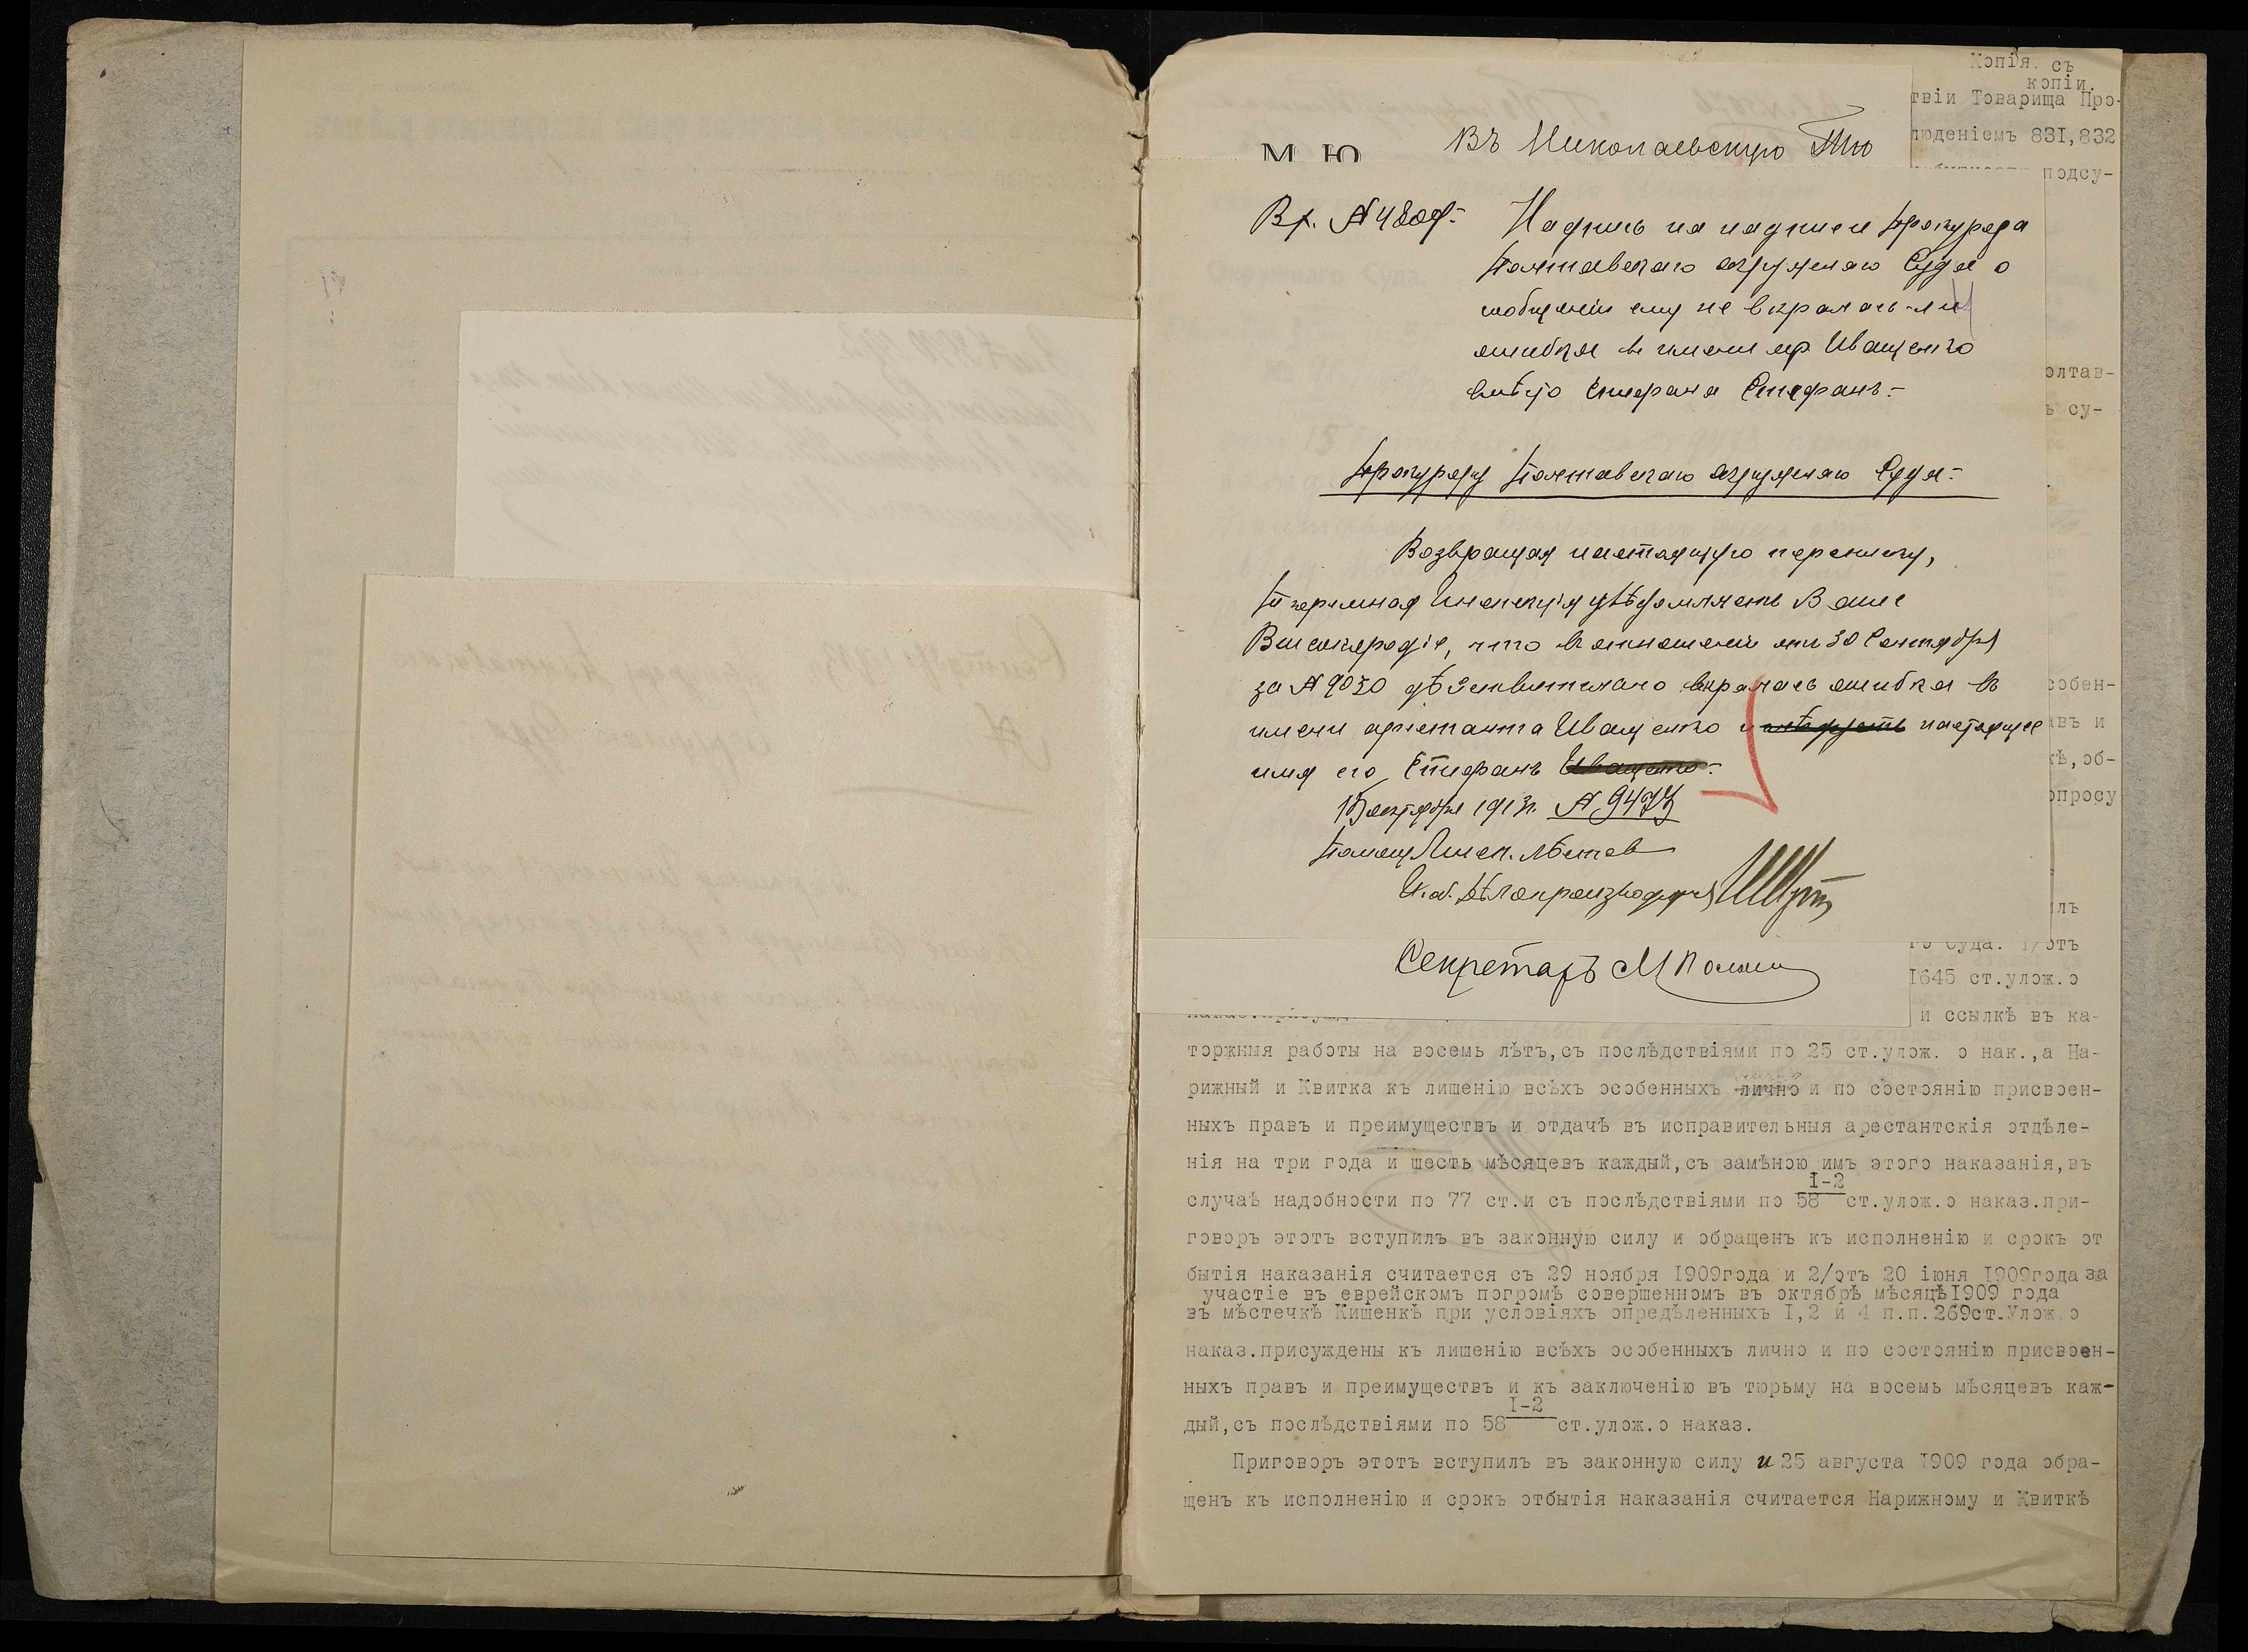 Копія съ
копіи.
твіи Товарища Про-
люденіемъ 831,832
подсу-
М. Ю.
Въ Николаевскую Тю
Вх. № 4809.
Надпись на надписи Прокурора
Полтавскаго окружнаго Суда о
сообщеніи ему не вкралась-ли
ошибка въ имени ар. Иващенко
вмѣсто Стефана Степанъ.-
олтав-
ъ су-
Прокурору Полтавскаго окружнаго Суда.-
Возвращая настоящую переписку,
Тюремная Инспекція увѣдомляетъ Ваше
Высокородіе, что въ отношеніи отъ 30 Сентября
за № 9030 дѣйствительно вкралась ошибка въ
имени арестанта Иващенко и настоящее
имя его Стефанъ Иващенко.-
собен-
авъ и
ѣ,об-
опросу
15 октября 1913г. № 9473
Помощ. Инсп.
И.об. Дѣлопроизводителя
лъ
го Суда. 1/отъ
Секретарь
1645 ст.улож.о
и ссылкѣ въ ка-
торжныя работы на восемь лѣтъ,съ послѣдствіями по 25 ст.улож. о нак.,а На-
рижный и Квитка къ лишенію всѣхъ особенныхъ лично и по состоянію присвоен-
ныхъ правъ и преимуществъ и отдачѣ въ исправительныя арестантскія отдѣле-
нія на три года и шесть мѣсяцевъ каждый,съ замѣною имъ этого наказанія,въ
случаѣ надобности по 77 ст.и съ послѣдствіями по 58 I-2 ст.улож.о наказ.при-
говоръ этотъ вступилъ въ законную силу и обращенъ къ исполненію и срокъ от
бытія наказанія считается съ 29 ноября I909года и 2/отъ 20 іюня I909года за
участіе въ еврейскомъ погромѣ совершенномъ въ октябрѣ мѣсяцѣ I909 года
въ мѣстечкѣ Кишенкѣ при условіяхъ опредѣленныхъ I,2 и 4 п.п.269ст.Улож.о
наказ.присуждены къ лишенію всѣхъ особенныхъ лично и по состоянію присвоен-
ныхъ правъ и преимуществъ и къ заключенію въ тюрьму на восемь мѣсяцевъ каж-
дый,съ послѣдствіями по 58 I-2 ст.улож.о наказ.
Приговоръ этотъ вступилъ въ законную силу и 25 августа I909 года обра-
щенъ къ исполненію и срокъ отбытія наказанія считается Нарижному и Квиткѣ